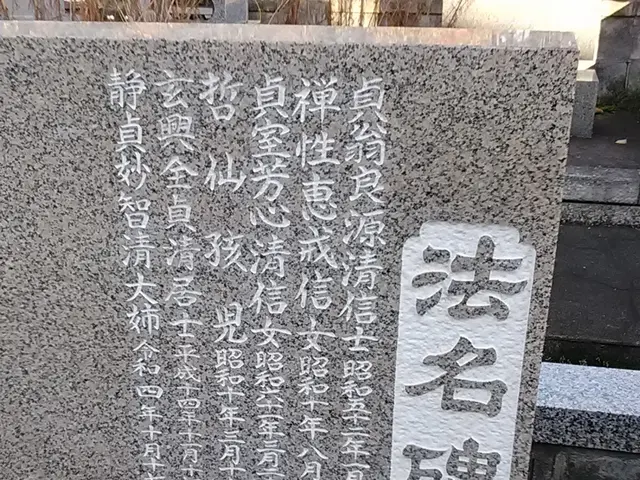 法名碑
貞翁良源清信士昭和五十二年一月
禅性恵戒信女昭和十年八月
貞室芳心清信女昭和六十一年三月二
哲仙孩児昭和十年三月十
玄興全貞清居士平成十四年十月十
静貞妙智清大姉令和四年十月十六